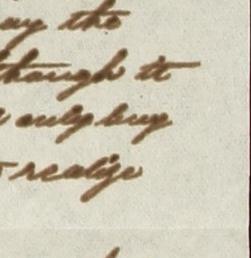 the
though it
only buy
realize